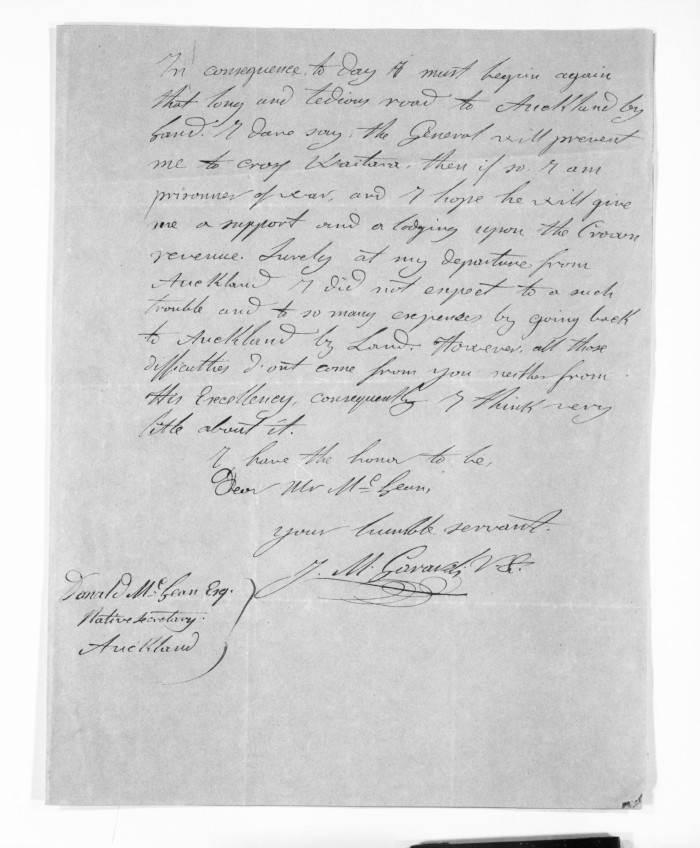 In consequence, to day I must begin again
that long and tedious road to Auckland by
Land. I dare say, the General will prevent
me to cross Waitara, then if so I am
prisonner of war, and I hope he will give
me a support and a lodging upon the Crown
revenue. Surely at my departure from
Auckland I did not expect to a such
trouble and to so many expenses by going back
to Auckland by Land. However, all those
difficulties d'ont come from you neither from
His Excellency, consequently I think very
little about it.
I have the honor to be,
Dear Mr McLean,
your humble servant.
J. M. Garavel, V.G.
Donald McLean Esq.
Native Secretary.
Auckland